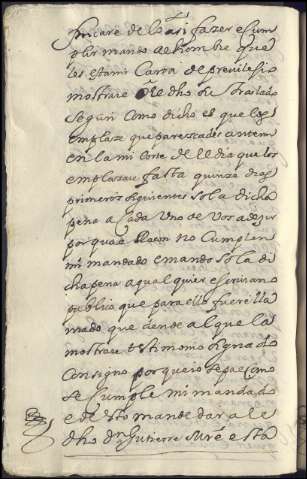 fincare de lo asi fazer e cum
plir mando al hombre que
les esta mi carta de previlesio
mostrare o el dho su traslado
segun como dicho es que los
emplaze que parescades ante mi
en la mi corte del dia que los
emplassare fasta quinze dias
primeros siguientes so la dicha
pena a cada uno de vos a desir
por qual rason no cumplen
mi mandado e mando so la di
cha pena a qual quier escrivano
publico que para ello fuere lla
mado que dende al que la
mostrare testimonio signado
con signo por que io sepa como
se cumple mi mandado
e de esto mande dar a le
dho Dn Gutierre Sures esta